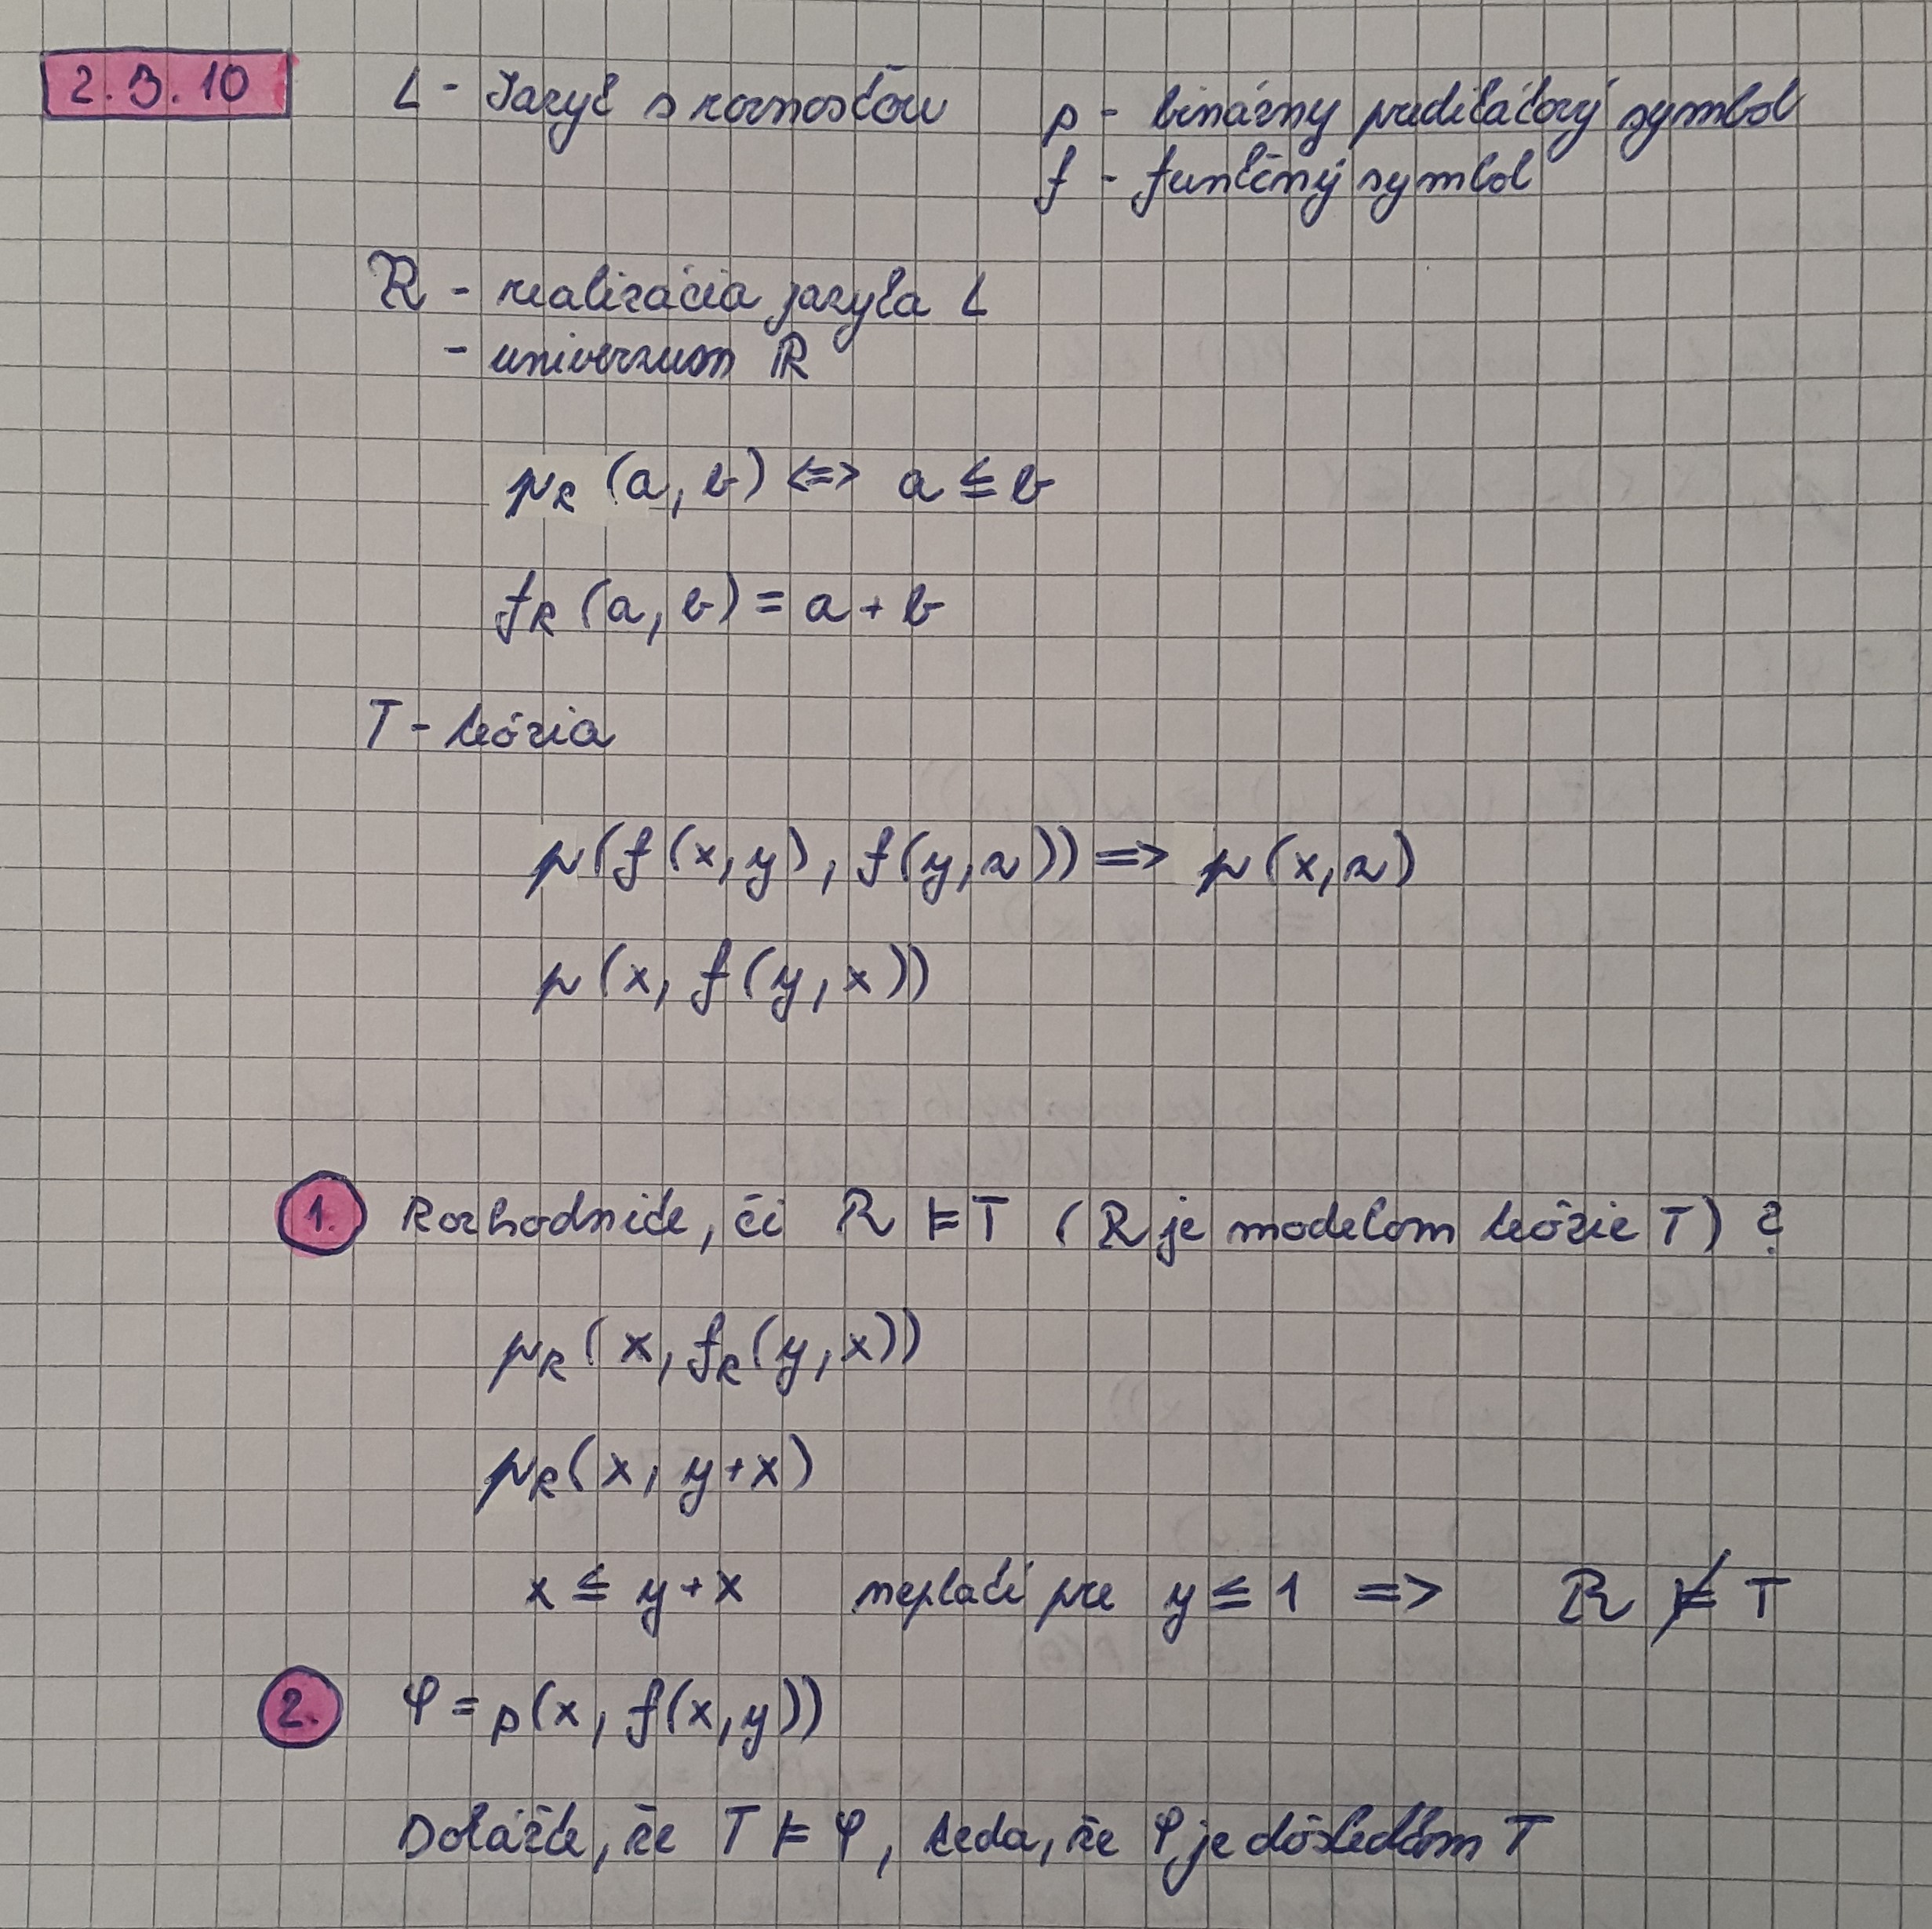 2.3.10 L - Jazyk s rovnosťou p - binárny predikátový symbol
f - funkčný symbol
R - realizácia jazyka L
- univerzum ℝ
p_R (a, b) <=> a ≤ b
f_R (a, b) = a + b
T - teória
p(f(x,y), f(y,z)) => p(x,z)
p(x, f(y,x))
1. Rozhodnite, či R ⊨ T (R je modelom teórie T) ?
p_R(x, f_R(y,x))
p_R(x, y+x)
x ≤ y+x neplatí pre y ≤ 1 => R ⊭ T
2. φ = p(x, f(x,y))
Dokážte, že T ⊨ φ, teda, že φ je dôsledkom T